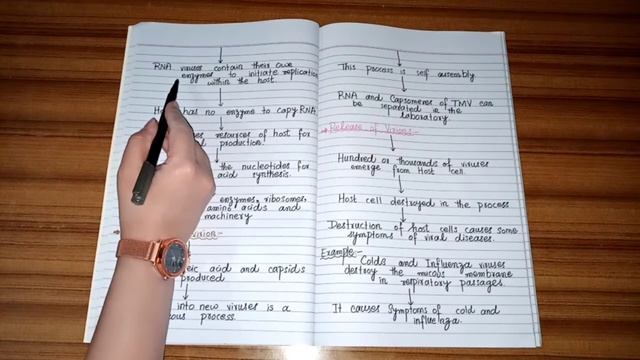 RNA viruses contain their owe
enzymes to initiate replication
within the host.
has no enzyme to copy RNA
resources of host for
production.
the nucleotides for
acid synthesis.
enzymes, ribosomes,
amino acids and
machinery
acid and capsids
produced
into new viruses is a
process.
This process is self assembly
RNA and Capsomers of TMV can
be separated in the
laboratory.
Release of Virions:-
Hundred or thousands of viruses
emerge from Host cell.
Host cell destroyed in the process
Destruction of host cells causes some
symptoms of viral diseases.
Example:-
Colds and Influenza viruses
destroy the mucous membrane
in respiratory passages.
It causes Symptoms of cold and
influenza.